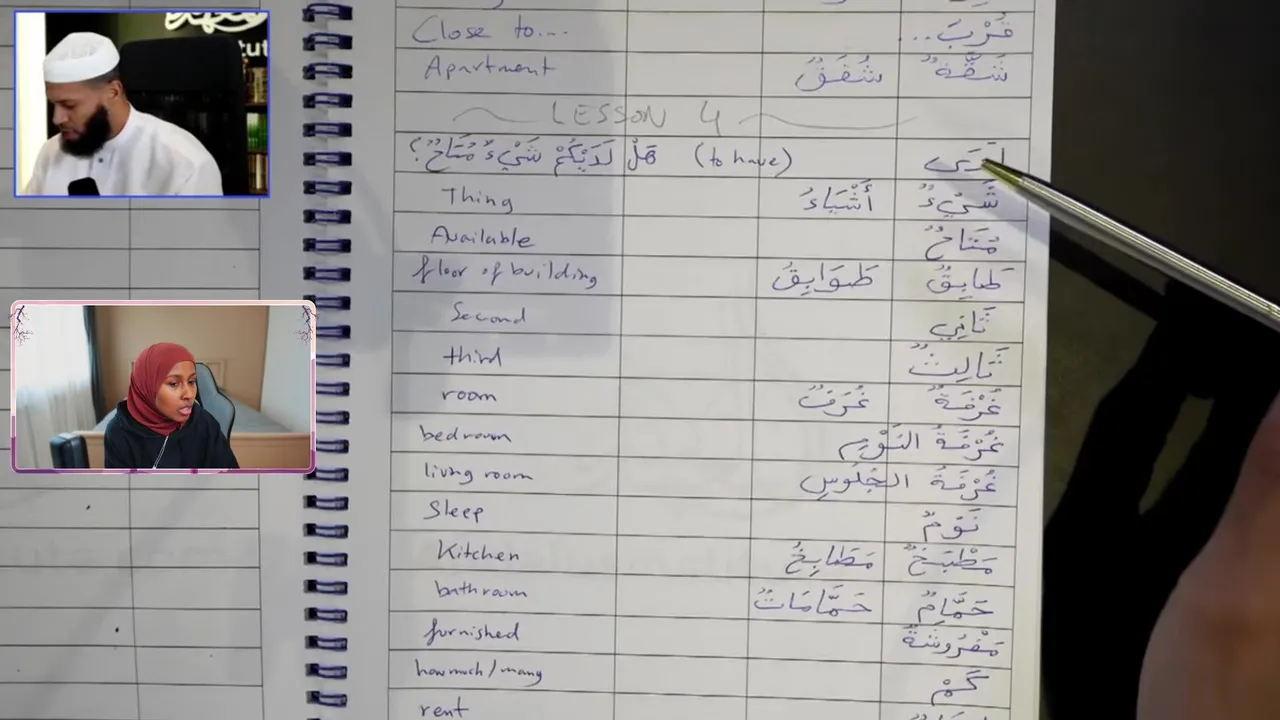 Close to.... قُرْبَ...
Apartment شُقَقٌ شَقَّةٌ
LESSON 4
هَلْ لَدَيْكُمْ شَيْءٌ مُتَاحٌ؟ (to have) لَدَى
Thing أَشْيَاءُ شَيْءٌ
Available مُتَاحٌ
floor of building طَوَابِقُ طَابِقٌ
Second ثَانِي
third ثَالِثٌ
room غُرَفٌ غُرْفَةٌ
bedroom غُرْفَةُ النَّوْمِ
living room غُرْفَةُ الجُلُوسِ
Sleep نَوْمٌ
Kitchen مَطَابِخُ مَطْبَخٌ
bathroom حَمَّامَاتٌ حَمَّامٌ
furnished مَفْرُوشَةٌ
how much / many كَمْ
rent